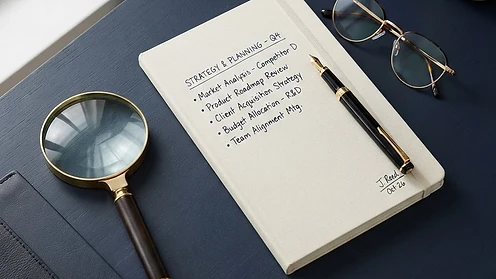 STRATEGY & PLANNING - Q4
• Market Analysis - Competitor D
• Product Roadmap Review
• Client Acquisition Strategy
• Budget Allocation - R&D
• Team Alignment Mtg.
J. Reed
Oct 26